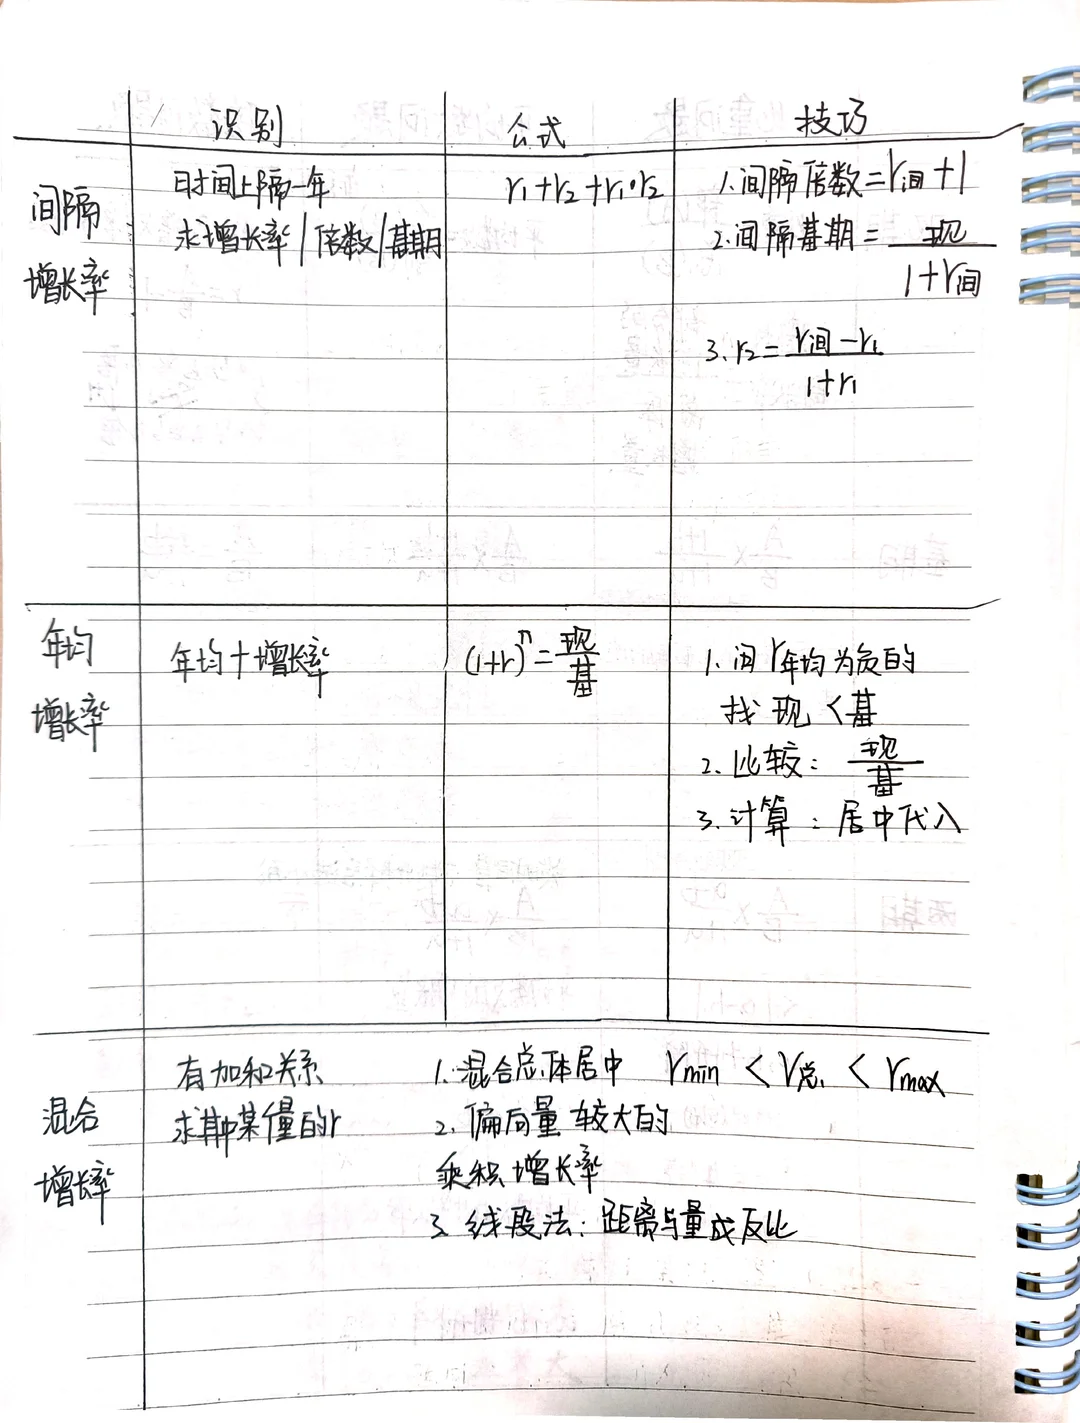 识别 公式 技巧
间隔增长率
时间上隔一年
求增长率/倍数/基期
r₁+r₂+r₁·r₂
1.间隔倍数=r间+1
2.间隔基期=现/1+r间
3.r₂=r间-r₁/1+r₁
年均增长率
年均+增长率
(1+r)ⁿ=现/基
1.问r年均为负的
找现<基
2.比较:现/基
3.计算:居中代入
混合增长率
有加和关系
求其中某个量的r
1.混合总体居中 rmin<r总<rmax
2.偏向量较大的
乘积增长率
3.线段法:距离与量成反比